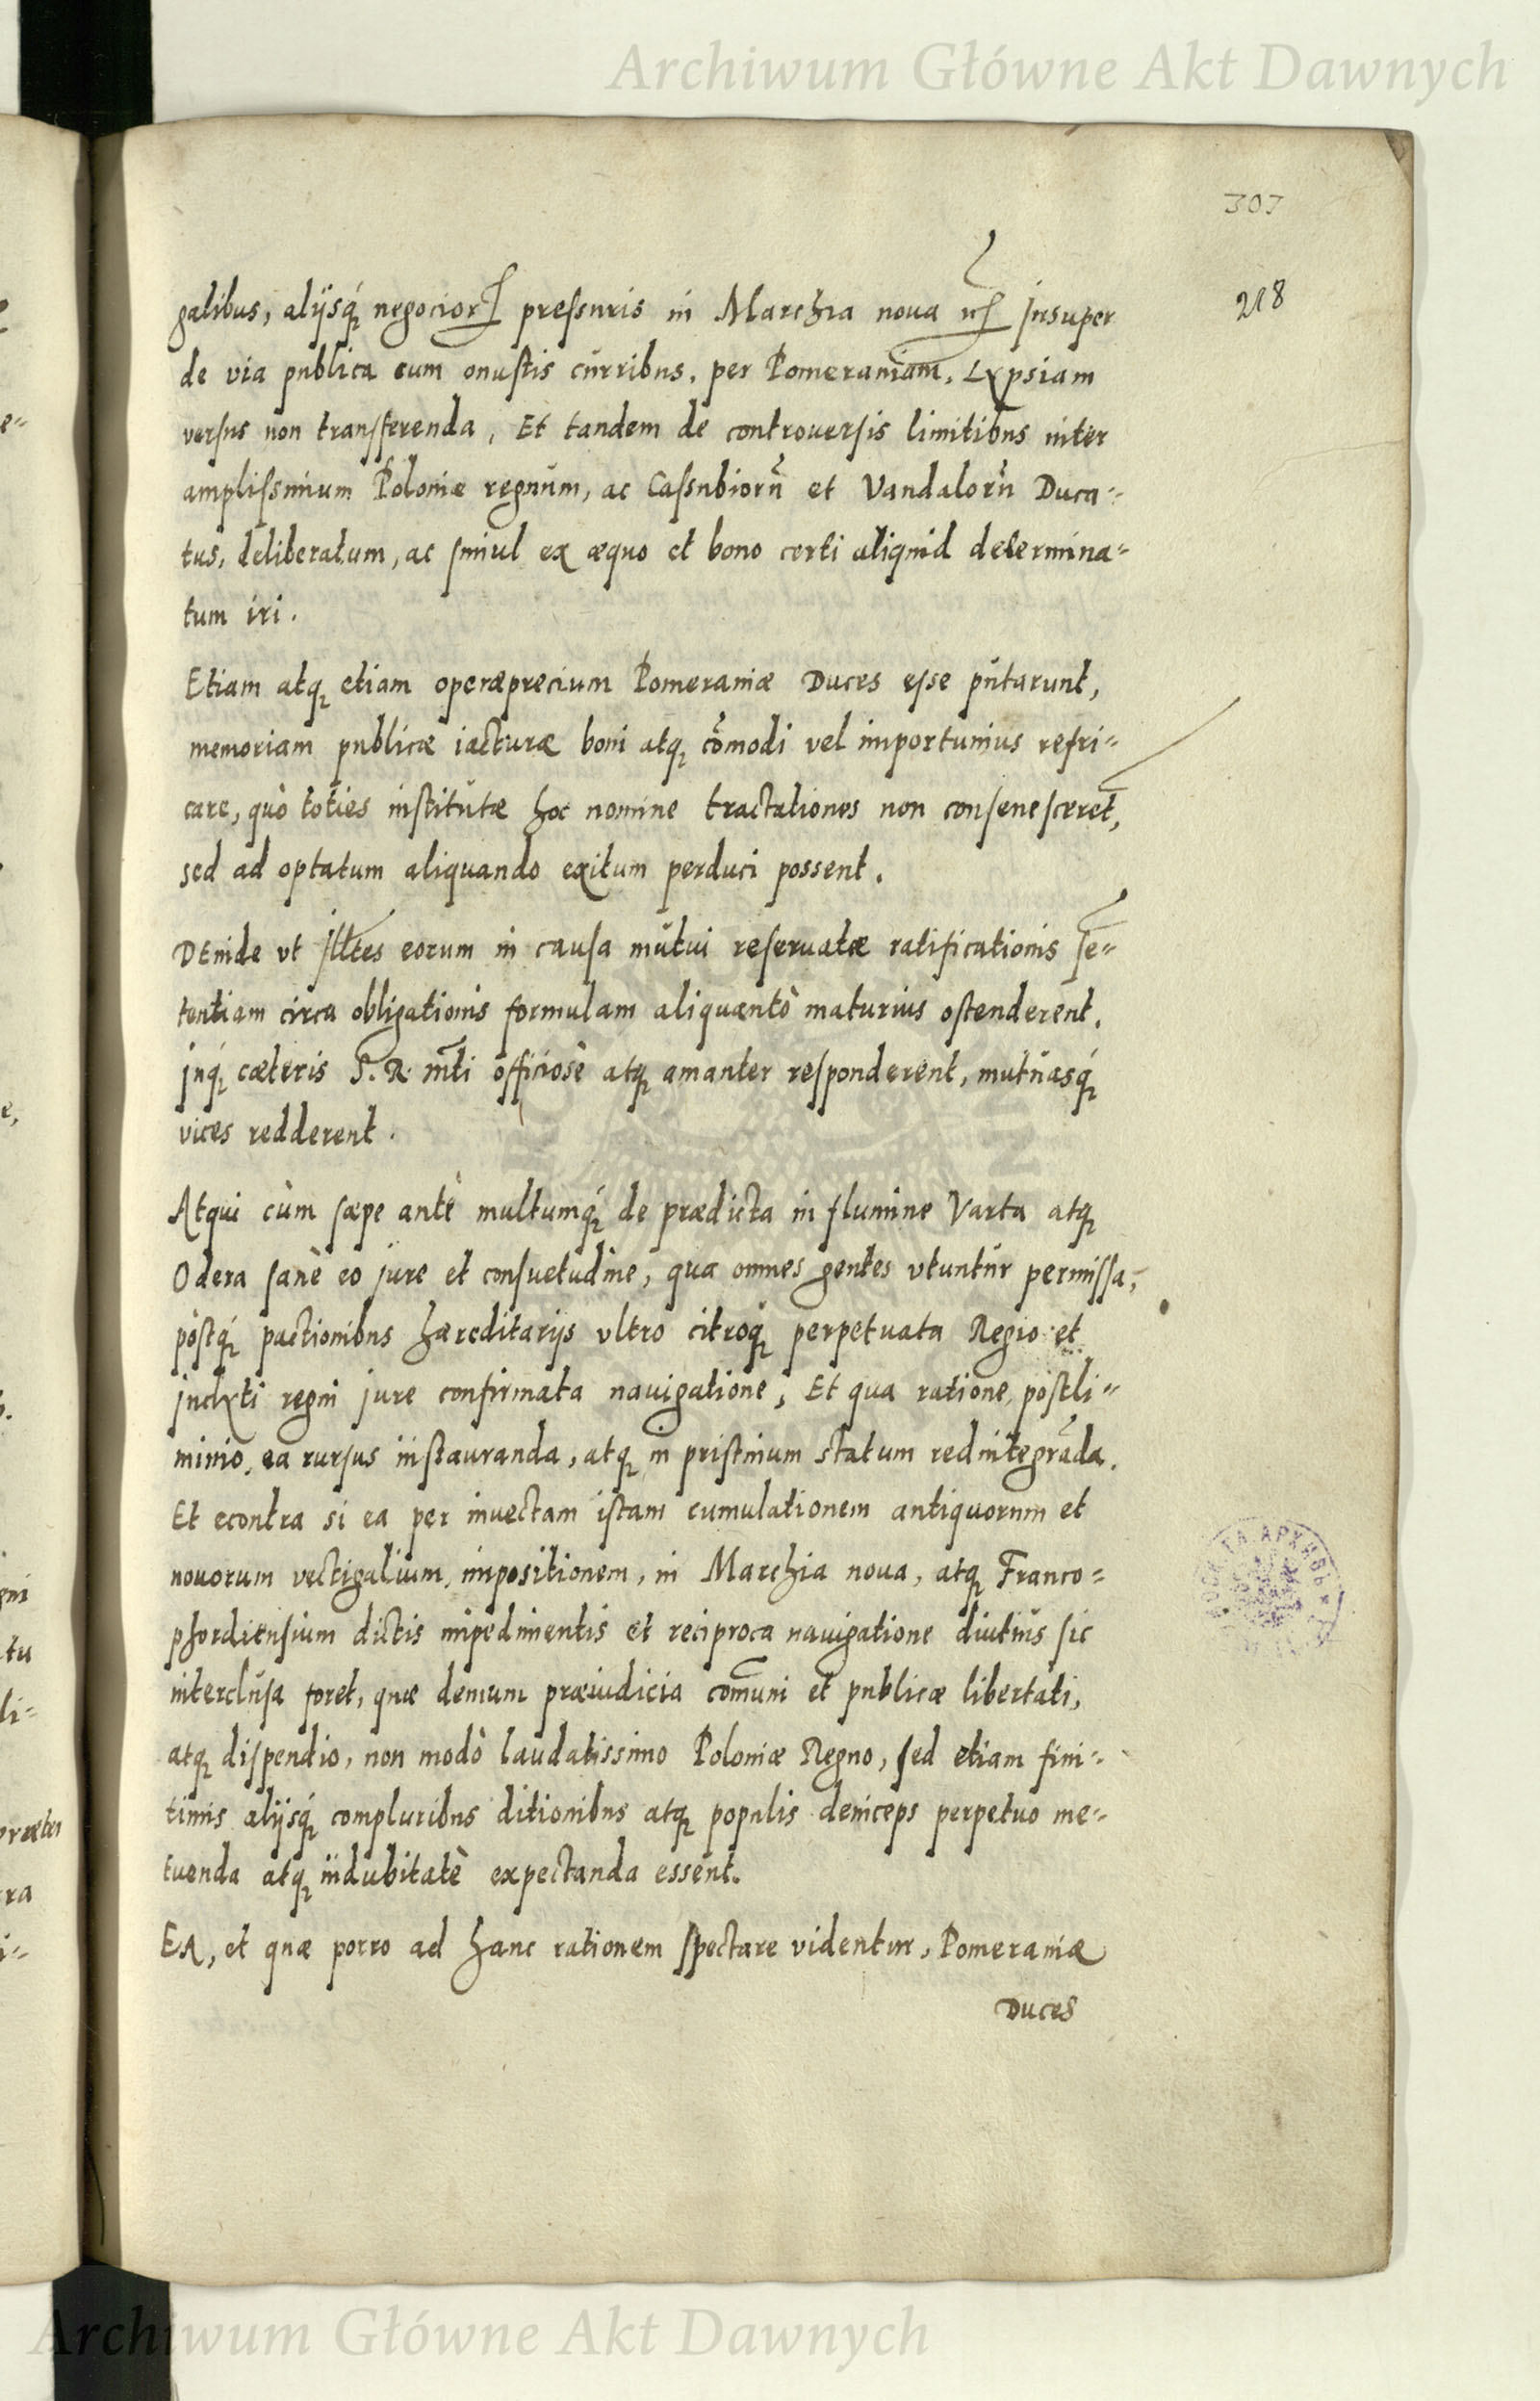 Archiwum Główne Akt Dawnych
303
218
galibus, alijsq́ꝫ negociorꝝ preſsuris in Marchia noua insuper
de via publica cum onuſtis curribus, per Pomeraniam, Lypsiam
verſus non tranſferenda, Et tandem de controuerſis limitibus inter
ampliſsimum Poloniæ regnum, ac Caſsubiorũ et Vandalorũ Duca-
tus, deliberatum, ac ſimul ex æquo et bono certi aliquid determina-
tum iri.
Etiam atqꝫ etiam operæprecium Pomeraniæ Duces eſse putarunt,
memoriam publicæ iacturæ boni atqꝫ cõmodi vel importunius refri-
care, quò toties inſtitutæ hoc nomine tractationes non conſeneſcerēt,
sed ad optatum aliquando exitum perduci possent.
DEinde vt Illtes eorum in cauſa mutui reſeruatæ ratificationis ſē-
tentiam circa obligationis formulam aliquantò maturius oſtenderent,
inq́ꝫ cæteris S. R. Mti officiosè atqꝫ amanter reſponderent, mutuasq́ꝫ
vices redderent.
Atqui cùm ſæpe antè multumq́ꝫ de prædicta in flumine Varta atqꝫ
Odera ſanè eo jure et conſuetudine, qua omnes gentes vtuntur permiſſa,
pòstq́ꝫ pactionibus hæreditarijs vltro citroq́ꝫ perpetuata Regio et
inclyti regni jure confirmata nauigatione, Et qua ratione poſtli-
minio, ea rurſus inſtauranda, atqꝫ in priſtinum statum redintegrãda.
Et econtra si ea per inuectam iſtam cumulationem antiquorum et
nouorum vectigalium, impositionem, in Marchia noua, atqꝫ Franco-
phordienſium dictis impedimentis et reciproca nauigatione diutius ſic
interclusa foret, quæ demum præiudicia com̃uni et publicæ libertati,
atqꝫ diſpendio, non modò laudatissimo Poloniæ Regno, ſed etiam fini-
timis alijsq́ꝫ compluribus ditionibus atqꝫ populis deinceps perpetuo me-
tuenda atqꝫ indubitatè expectanda essent.
EA, et quæ porro ad hanc rationem ſpectare videntur, Pomeraniæ
Duces
Archiwum Główne Akt Dawnych